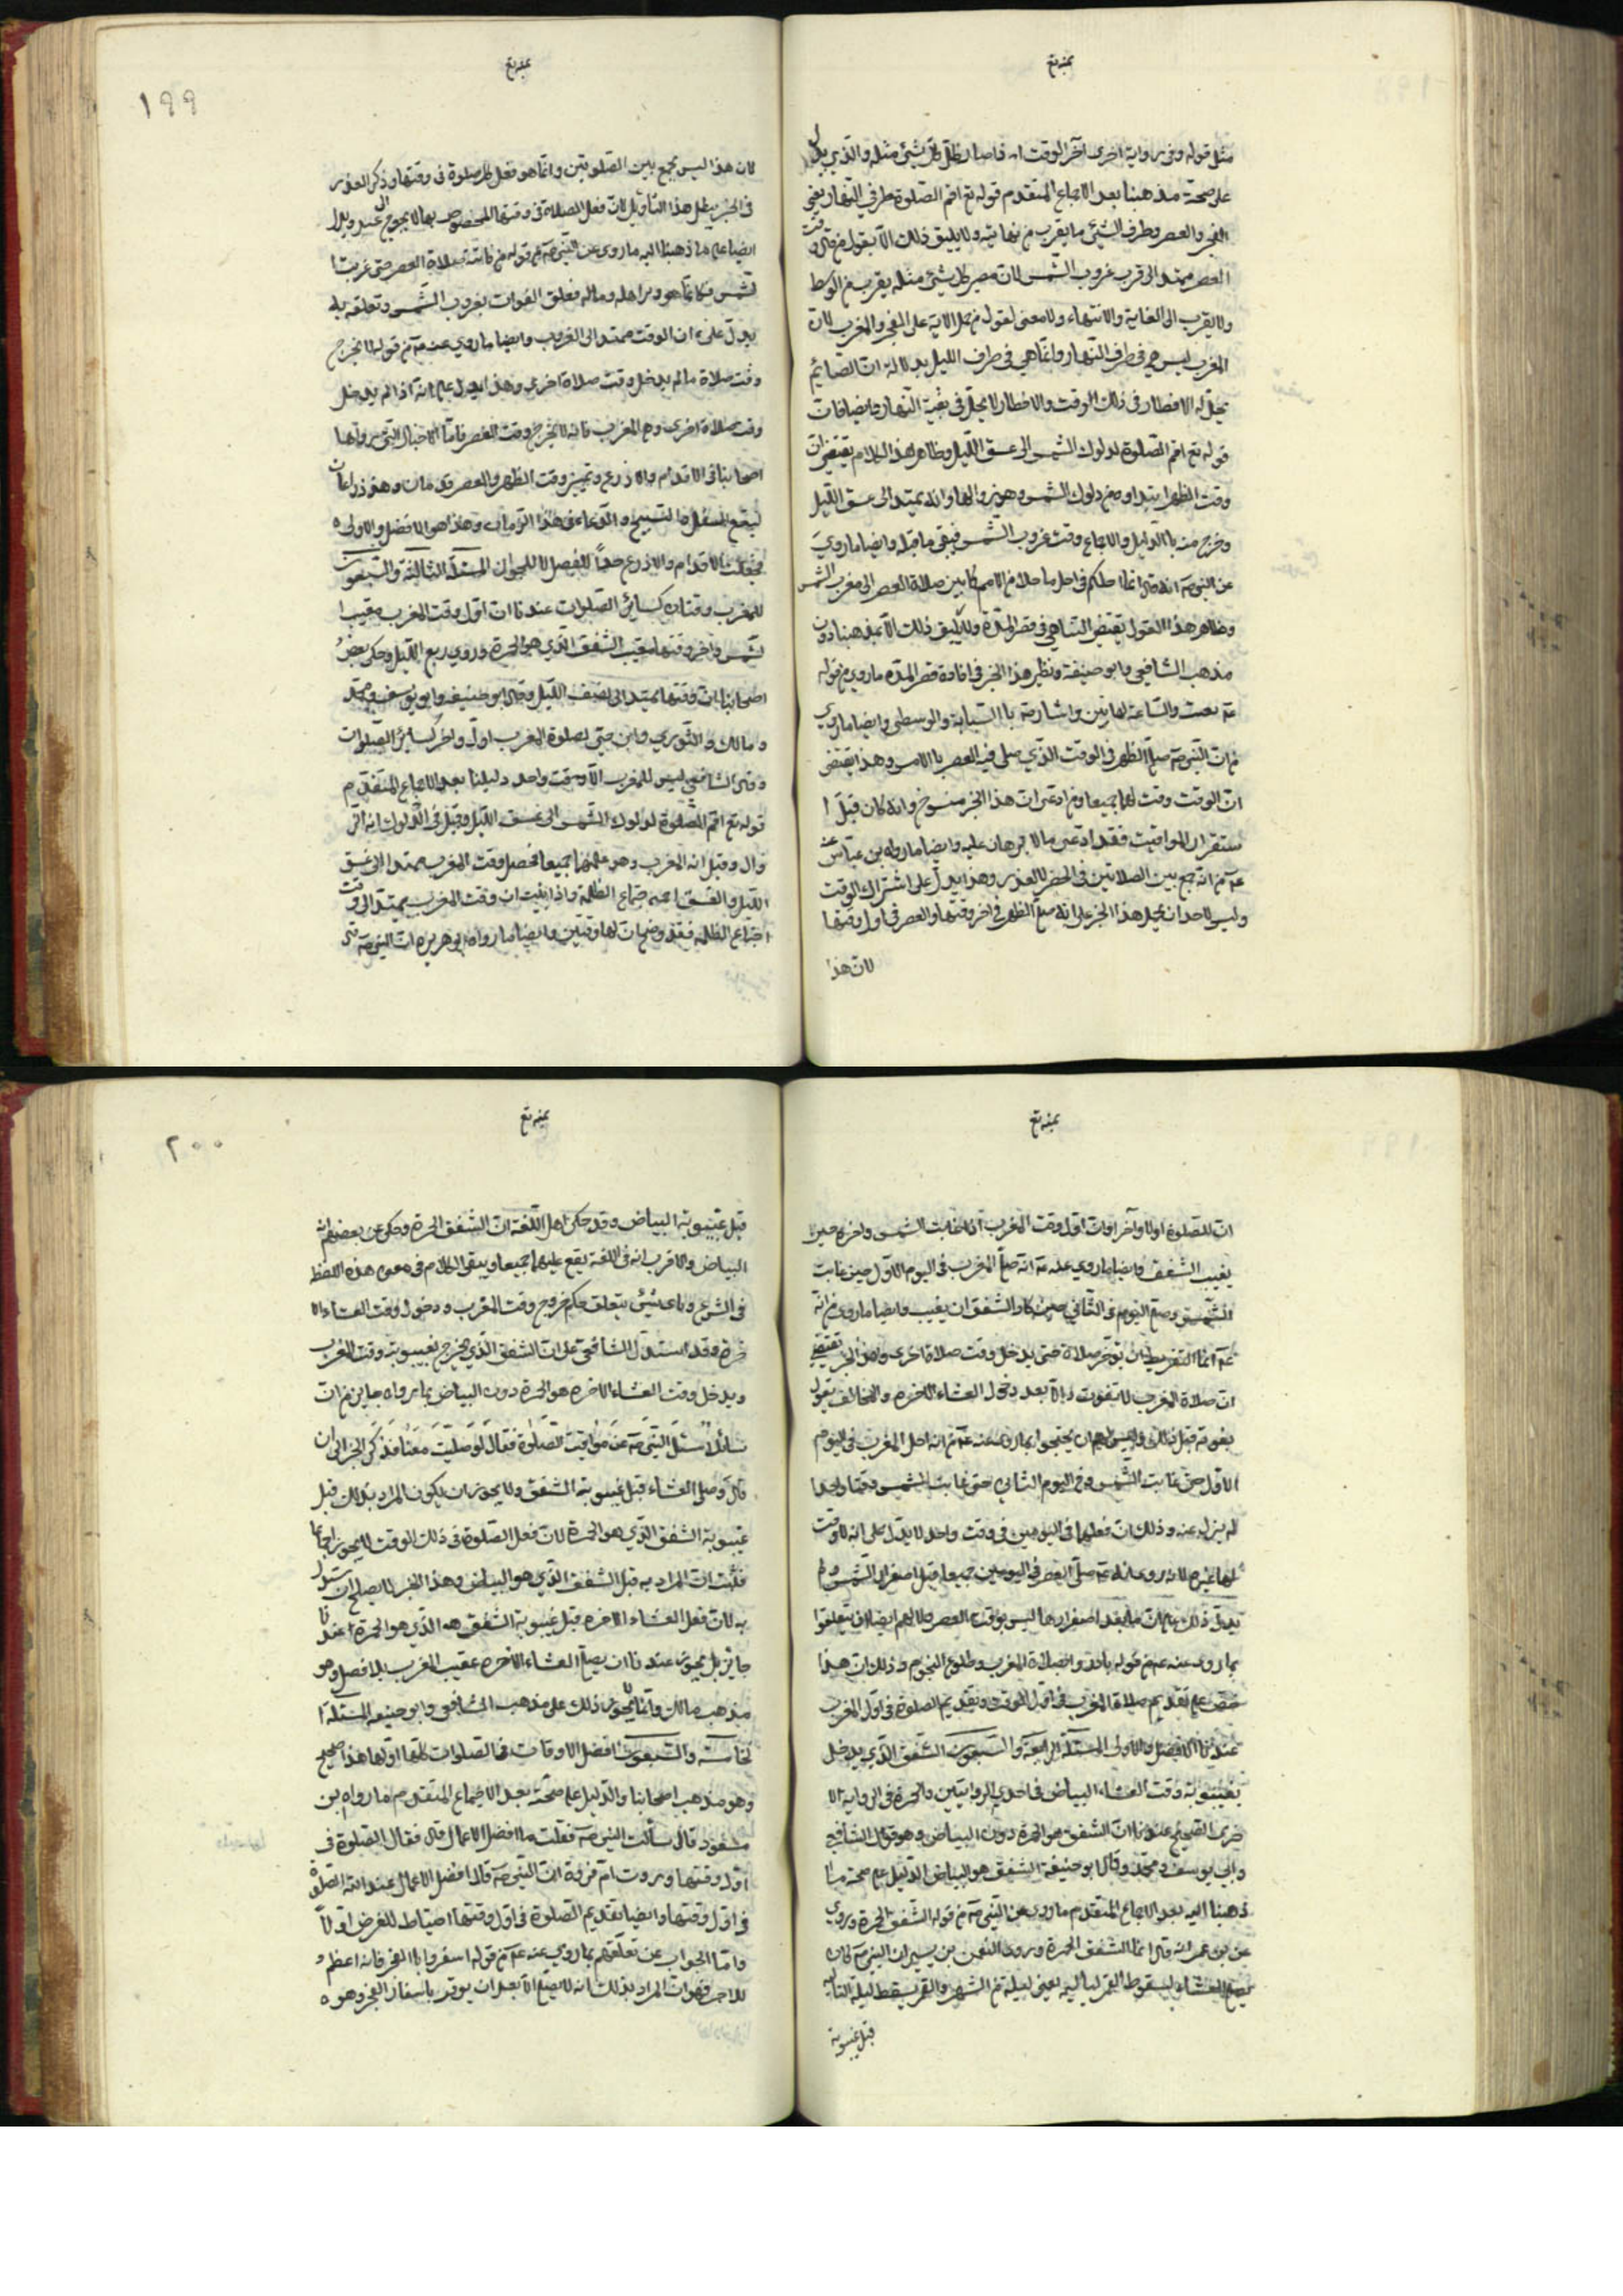 بمنه تع
مثل قوله وفي رواية اخرى آخر الوقت اذا صار ظل كل شئ مثله والذي يدل
على صحة مذهبنا بعد الاجماع المتقدم قوله تع اقم الصلوة طرفي النهار يعني
الفجر والعصر وطرف الشئ ما يقرب من نهايته ولا يليق ذلك الا بقول من قال وقت
العصر ممتد الى قرب غروب الشمس لان مصير كل شئ مثله يقرب من الوسط
ولا يقرب الى الغاية والانتهاء ولا معنى لقول من حمل الاية على الفجر والمغرب لان
المغرب ليس هي في طرف النهار وانما هي في طرف الليل بدلالة ان الصائم
يحل له الافطار في ذلك الوقت والافطار لا يحل في بقية النهار وايضا فان
قوله تع اقم الصلوة لدلوك الشمس الى غسق الليل وظاهر هذا الكلام يقتضي ان
وقت الظهر ابتداوه من دلوك الشمس وهو زوالها وانه يمتد الى غسق الليل
وخرج منه با الدليل والاجماع وقت غروب الشمس فبقي ما قبله وايضا ما روي
عن النبي صه انه قال انما اجلكم في اجل ما خلا من الامم كما بين صلاة العصر الى مغرب الشمس
وظاهر هذا القول يقتضي التناهي في قصر المدة ولا يليق ذلك الا بمذهبنا دون
مذهب الشافعي وابو حنيفة ونظير هذا الخبر في افادة قصر المدة ما روي من قوله
عه بعثت والساعة كهاتين واشارته با السبابة والوسطى وايضا ما روي
من ان النبي صه صلى الظهر في الوقت الذي صلى فيه العصر با الامس وهذا يقتضي
ان الوقت وقت لهما جميعا ومن ادعى ان هذا الخبر منسوخ وانه كان قبل ا
ستقرار المواقيت فقد ادعى ما لا برهان عليه وايضا ما رواه بن عباس عنه
عه من انه جمع بين الصلاتين في الحضر لا لعذر وهذا يدل على اشتراك الوقت
وليس لاحد ان يحمل هذا الخبر على انه صلى الظهر في اخر وقتها والعصر في اول وقتها
لان هذا
بمنه تع
١٩٩
لان هذا ليس بجمع بين الصلوتين وانما هو فعل كل صلوة في وقتها وذكر العذر
في الخبر يبطل هذا التأويل لان فعل الصلاة في وقتها المخصوص بها لا يحوج الى عذر ويدل
ايضا على ما ذهبنا اليه ما روي عن النبي صه من قوله من فاتته صلاة العصر حتى غربت ا
لشمس فكانما هو وتر اهله وماله فعلق الفوات بغروب الشمس وتعلقه به
يدل على ان الوقت ممتد الى الغروب وايضا ما روي عنه عه من قوله لا يخرج
وقت صلاة ما لم يدخل وقت صلاة اخرى وهذا يدل على انه اذا لم يدخل
وقت صلاة اخرى وهي المغرب فانه لا يخرج وقت العصر فاما الاخبار التي رواها
اصحابنا في الاقدام والاذرع وتمييز وقت الظهر والعصر قدمان وهو ذراعان
ليقع التنفل والتسبيح والدعاء في هذا الزمان وهذا هو الافضل والاولى
فجعلت الاقدام والاذرع حدا للفصل لا للجواز المسئلة الثالثة والسبعون
للمغرب وقتان كسائر الصلوات عندنا ان اول وقت المغرب مغيب ا
لشمس واخر وقتها مغيب الشفق الذي هو الحمرة وروي ربع الليل وحكى بعض
اصحابنا ان وقتها يمتد الى نصف الليل وقال ابو حنيفه وابو يوسف ومحمد
ومالك والثوري وابن حي لصلوة المغرب اول واخر كسائر الصلوات
وقال الشافعي ليس للمغرب الا وقت واحد دليلنا بعد الاجماع المتقدم
قوله تع اقم الصلوة لدلوك الشمس الى غسق الليل وقيل في الدلوك انه الز
وال وقيل انه الغرب وهو عليهما جميعا فحصل وقت المغرب ممتدا الى غسق
الليل والغسق اجتماع الظلمة واذا ثبت ان وقت المغرب يمتد الى وقت
اجتماع الظلمه فقد وضح ان لها وقتين وايضا ما رواه ابو هريره ان النبي صه قال
بمنه تع
ان للصلوة اولا وآخرا وان اول وقت المغرب اذا غابت الشمس واخره حين
يغيب الشفق وايضا ما روي عنه عه انه صلى المغرب في اليوم الاول حين غابت
الشمس وصلى اليوم في الثاني حين كاد الشفق ان يغيب وايضا ما روي من انه
عه انما التفريط ان تؤخر صلاة حتى يدخل وقت صلاة اخرى وهذا الخبر يقتضي
ان صلاة المغرب لا تفوت الا بعد دخول العشاء الاخره والمخالف يقول
بفوته قبل ذلك وليس لهم ان يحتجوا بما روي عنه عه من انه صلى المغرب في اليوم
الاول حين غابت الشمس وفي اليوم الثاني حين غابت الشمس وقتا واحدا
لم يزل عنه وذلك ان فعلها في اليومين في وقت واحد لا يدل على انه لا وقت
لها غيره لانه روي انه عه صلى العصر في اليومين جميعا قبل اصفرار الشمس ولم
يدل ذلك على ان ما بعد اصفرارها ليس بوقت العصر ولا لهم ايضا ان يتعلقوا
بما روي عنه عه من قوله بادروا بصلاة المغرب وطلوع النجوم وذلك ان هذا
حض على تقديم صلاة المغرب في اول الوقت وتقديم الصلوة في اول المغرب
عندنا الافضل والاولى المسئلة الرابعة والسبعون الشفق الذي يدخل
بغيبوبته وقت العشاء البياض في احدى الروايتين والحمرة في الرواية الا
خرى الصحيح عندنا ان الشفق هو الحمرة دون البياض وهو قول الشافعي
وابي يوسف ومحمد وقال ابو حنيفة الشفق هو البياض الدليل على صحة ما
ذهبنا اليه بعد الاجماع المتقدم ما روي عن النبي صه من قوله الشفق الحمرة وروي
عن بن عمر انه قال انما الشفق الحمرة وروى النعمن بن بشير ان النبي صه كان
يصلي العشاء لسقوط القمر لياليه يعني ليلة من الشهر والقمر يسقط ليلة الثالثه
قبل غيبوبة
بمنه تع
٢٠٠
قبل غيبوبة البياض وقد حكى اهل اللغة ان الشفق الحمرة وحكي عن بعضهم انه
البياض والاقرب انه في اللغة يقع عليهما جميعا ويبقى الكلام في معنى هذه اللفظ
في الشرع وباي شئ يتعلق حكم خروج وقت المغرب ودخول وقت العشاء الا
خرة وقد استدل الشافعي على ان الشفق الذي يخرج بغيبوبته وقت المغرب
ويدخل وقت العشاء الاخره هو الحمرة دون البياض بما رواه جابر من ان
سائلا سئل النبي صه عن مواقيت الصلوة فقال لو صليت معنا فذكر الخبر الى ان
قال وصلى العشاء قبل غيبوبة الشفق ولا يجوز ان يكون المراد بذلك قبل
غيبوبة الشفق الذي هو الحمرة لان فعل الصلوة في ذلك الوقت لا يجوز اجماعا
فثبت ان المراد به قبل الشفق الذي هو البياض وهذا الخبر لا يصلح ان يستدل
به لان فعل العشاء الاخره قبل غيبوبة الشفق الذي هو الحمرة عندنا
جائز بل يجوز عندنا ان يصلي العشاء الاخره عقيب المغرب بلا فصل وهو
مذهب مالك وانما لا يجوز ذلك على مذهب الشافعي وابو حنيفه المسئلة ا
لخامسة والسبعون افضل الاوقات في الصلوات كلها اولها هذا صحيح
وهو مذهب اصحابنا والدليل على صحته بعد الاجماع المتقدم ما رواه بن
مسعود قال سألت النبي صه فقلت ما افضل الاعمال قال فقال الصلوة في
اول وقتها وروت ام فروة ان النبي صه قال افضل الاعمال عند الله الصلوة
في اول وقتها وايضا تقديم الصلوة في اول وقتها احتياط للفرض او لا
واما الجواب عن تعلقهم بما روي عنه عه من قوله اسفروا با الفجر فانه اعظم
للاجر فهو ان المراد بذلك انه لا يصلى الا بعد ان يوقن باسفار الفجر وهو